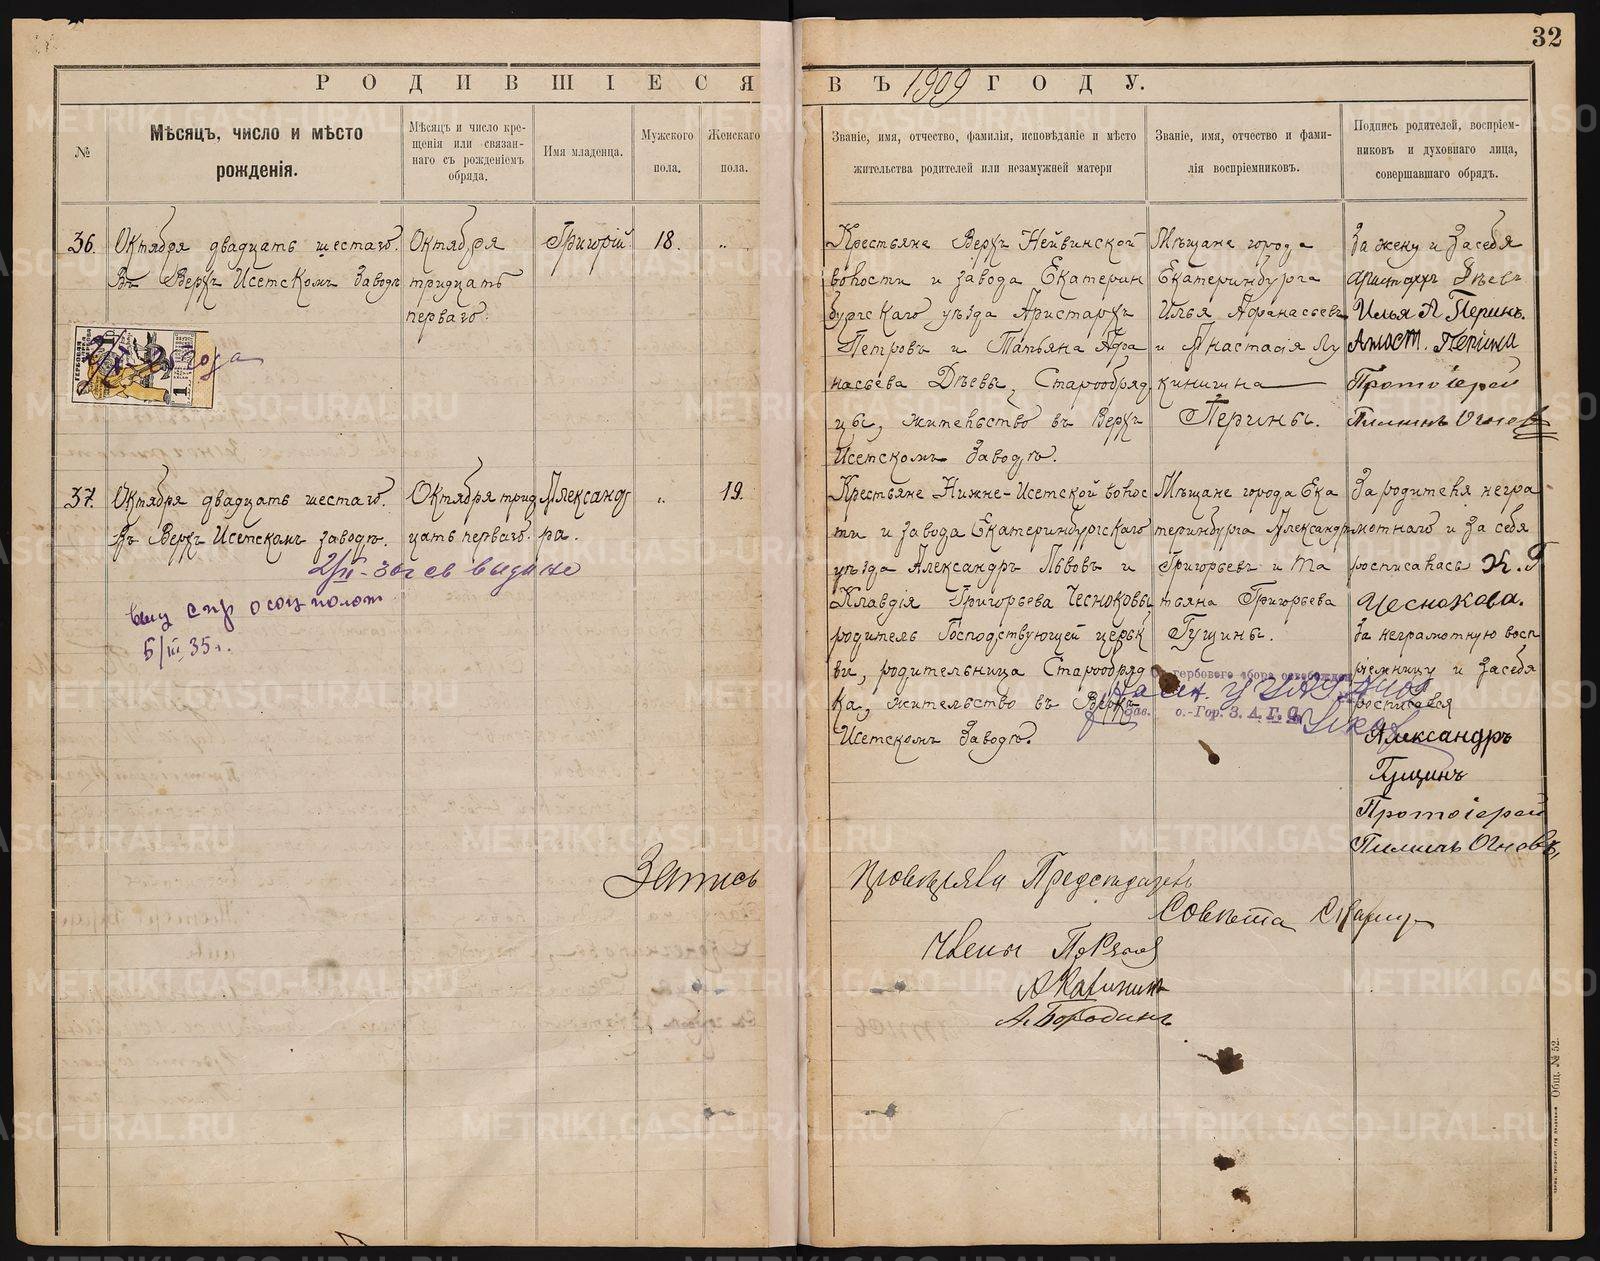 32
РОДИВШІЕСЯ ВЪ 1909 ГОДУ.
№
Мѣсяцъ, число и мѣсто
рожденія.
Мѣсяцъ и число кре-
щенія или связан-
наго съ рожденіемъ
обряда.
Имя младенца.
Мужского
пола.
Женскаго
пола.
Званіе, имя, отчество, фамилія, исповѣданіе и мѣсто
жительства родителей или незамужней матери
Званіе, имя, отчество и фами-
лія воспріемниковъ.
Подпись родителей, воспріем-
никовъ и духовнаго лица,
совершавшаго обрядъ.
36.
Октября двадцать шестаго.
Въ Верхъ Исетскомъ Заводѣ
Октября
тридцать
перваго.
Григорій
18.
Крестьяне Верхъ Нейвинской
волости и завода Екатерин
бургскаго уѣзда Аристархъ
Петровъ и Татьяна Афа
насьева Дѣевы, Старообряд
цы, жительство въ Верхъ
Исетскомъ Заводѣ.
Мѣщане города
Екатеринбурга
Илья Афанасьевъ
и Анастасія Лу
кинична
Перины.
За жену и за себя
Аристархъ Дѣевъ
Илья А Перинъ.
Анаст. Перина
Протоіерей
Пилипъ Огневъ
года
1
37.
Октября двадцать шестаго.
Въ Верхъ Исетскомъ заводѣ.
Октября трид
цать перваго.
Александ
ра.
19.
Крестьяне Нижне-Исетской волос
ти и завода Екатеринбургскаго
уѣзда Александръ Львовъ и
Клавдія Григорьева Чесноковы,
родитель Господствующей церьк
ви, родительница Старообряд
ка, жительство въ Верхъ
Исетскомъ Заводѣ.
Мѣщане города Ека
теринбурга Александръ
Григорьевъ и Та
тьяна Григорьева
Гущины.
За родителя негра
мотнаго и за себя
росписалась К. Г
Чеснокова.
За неграмотную восп
ріемницу и за себя
росписался
Александръ
Гущинъ
Протоіерей
Пилипъ Огневъ,
выдано
5/III 35 г.
гербового сбора
о.-Гор. З. А. Г. С.
Запись провѣряли Предсѣдатель
Совѣта
Члены
А Калининъ
А. Бородинъ
Общ. № 52.
METRIKI.GASO-URAL.RU